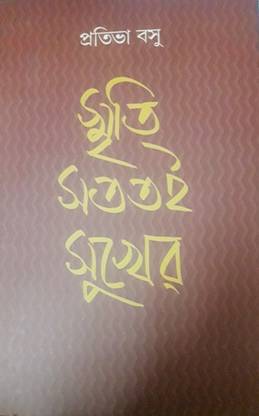 প্রতিভা বসু
স্মৃতি
সততই
সুখের